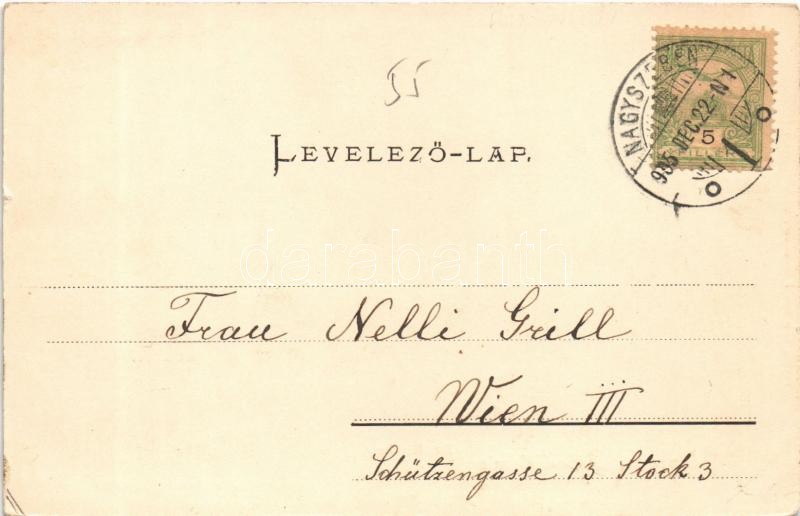 55
NAGYSZEBEN
905 DEC. 22-N
5
LEVELEZŐ-LAP.
darabanth
Frau Nelli Grill
Wien III
Schützengasse 13 Stock 3